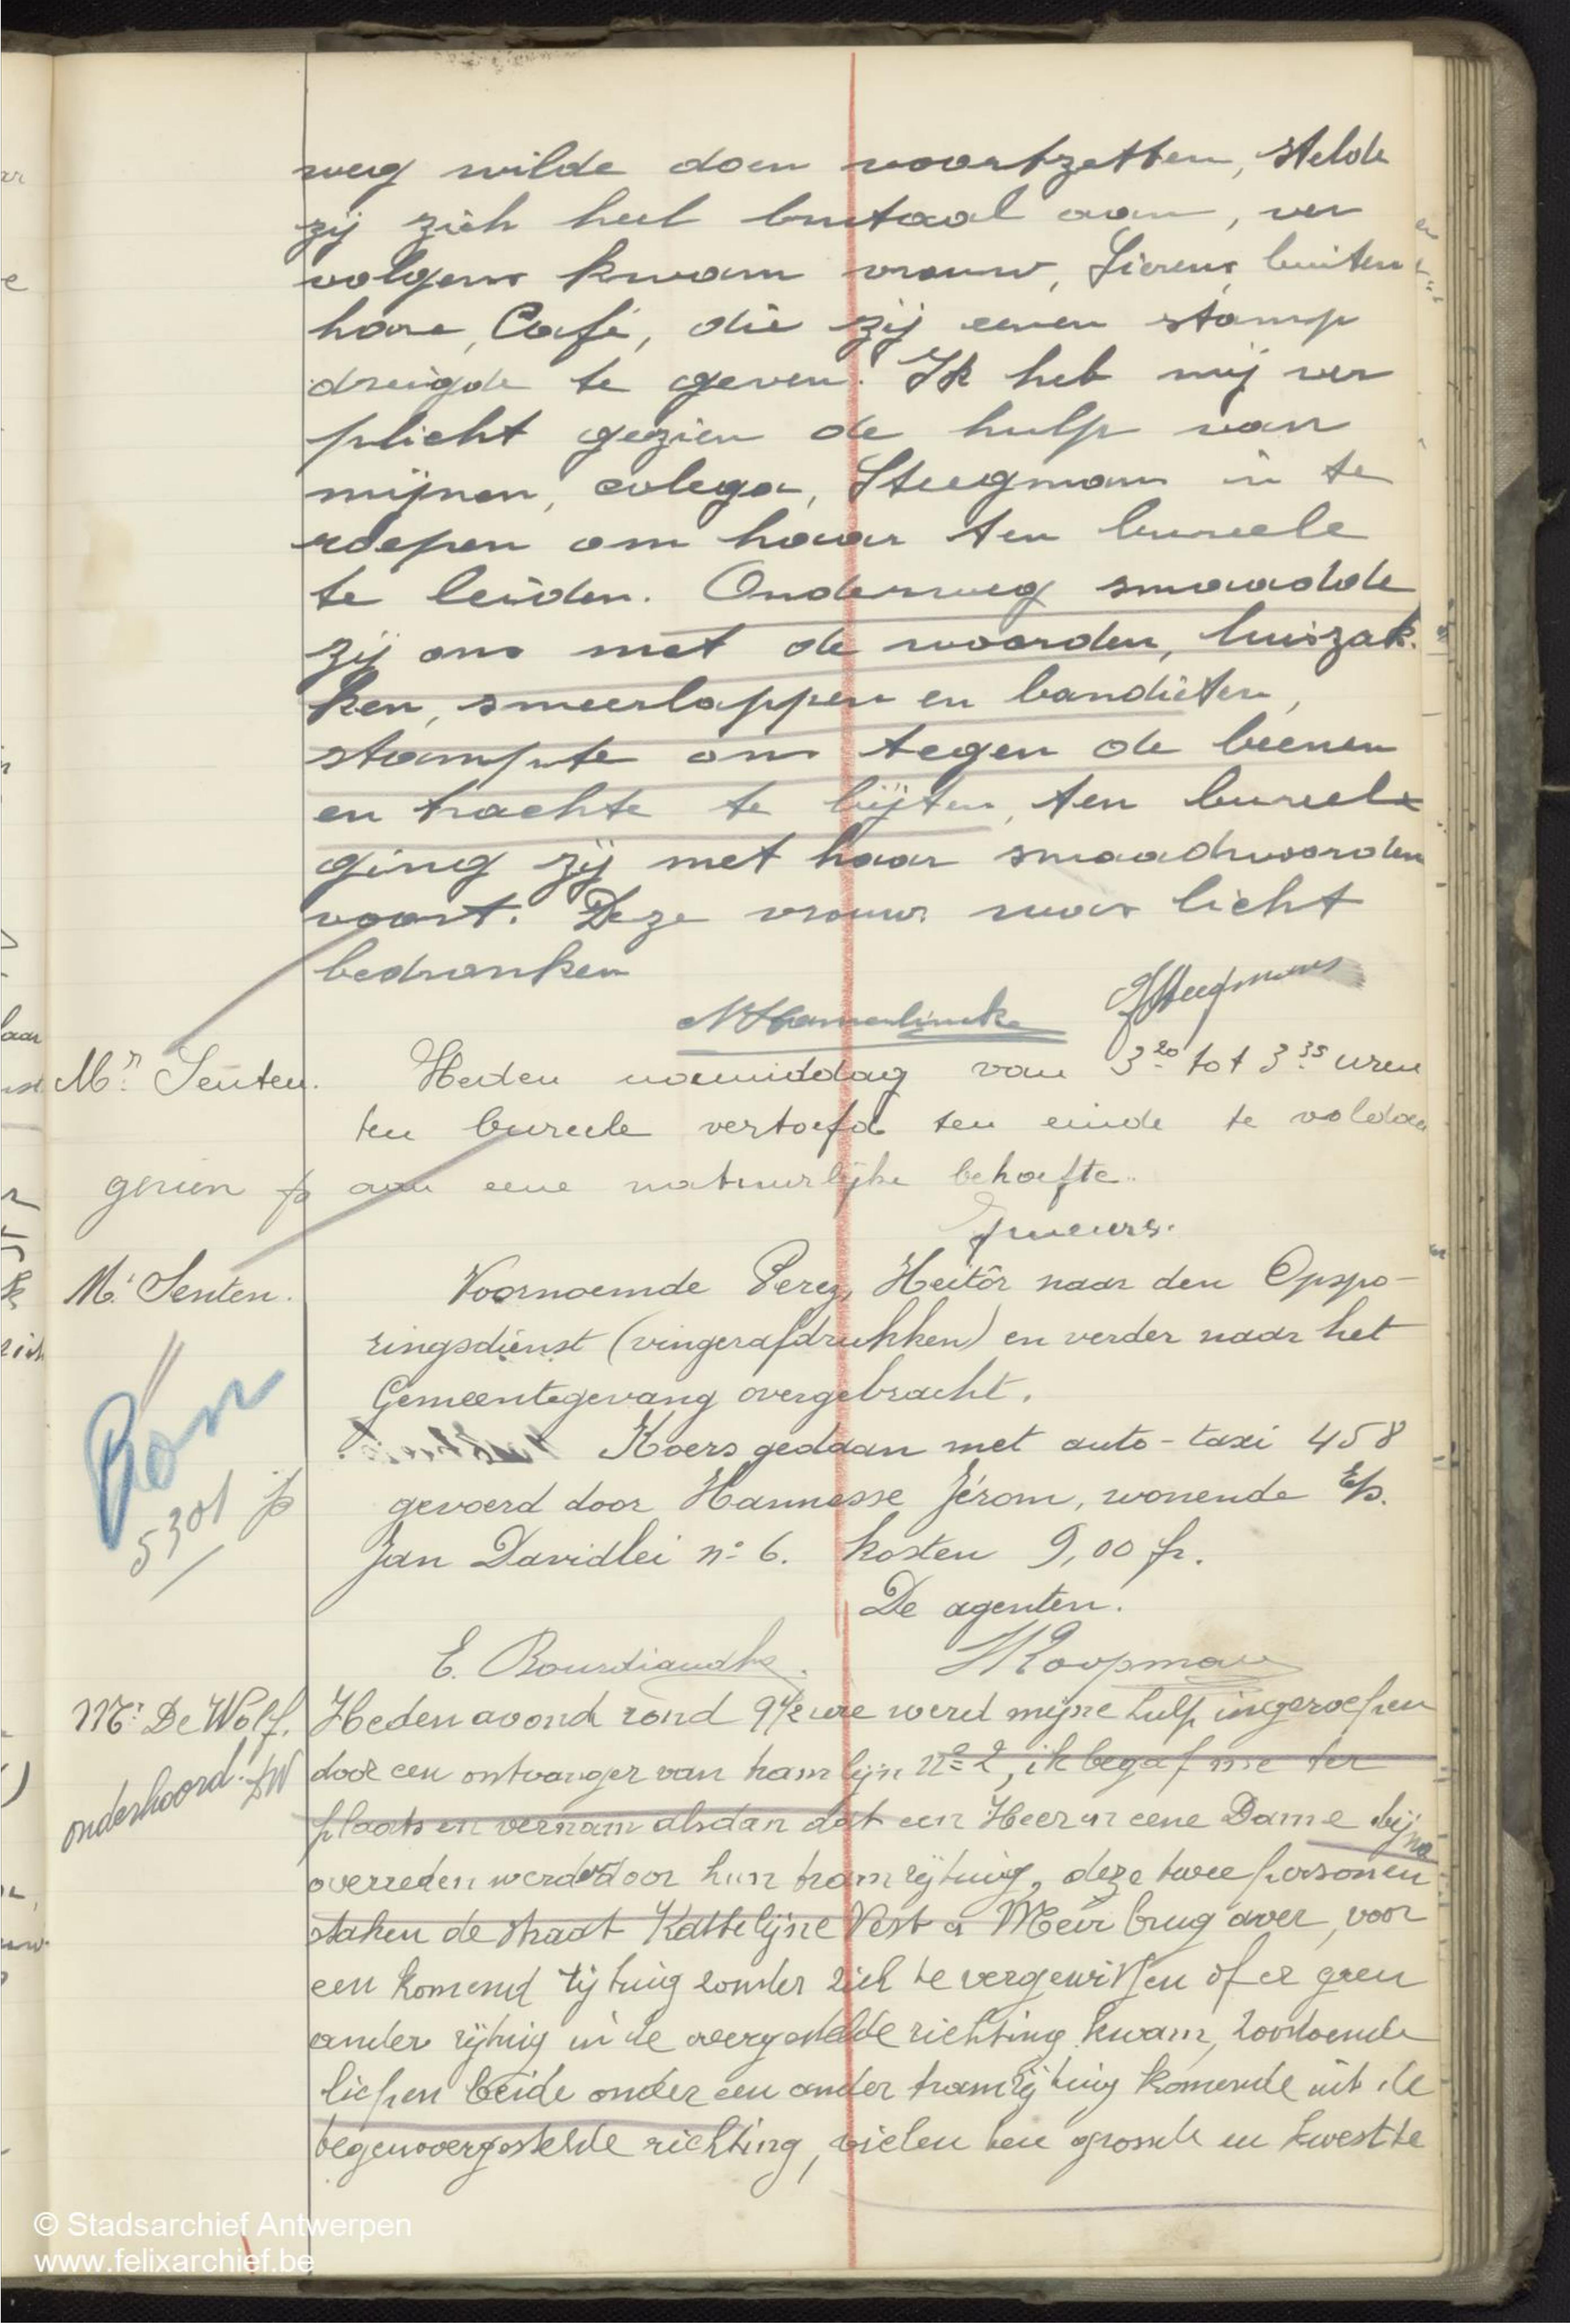 weg wilde doen voortzetten, stelde
zij zich heel brutaal aan, ver
volgens kwam vrouw, Lierens, buiten
hare, Café, die zij eenen stamp
dreigde te geven. Ik heb mij ver
plicht gezien de hulp van
mijnen, colega, Steegmans in te
roepen om haar ten bureele
te leiden. Onderweg smaadde
zij ons met de woorden, luiszak-
ken, smeerlappen en bandieten,
stampte ons tegen de beenen
en trachte te bijten, ten bureele
ging zij met haar smaadwoorden
voort. Deze vrouw was licht
bedronken
Steegmans
Mr Senten. Heden voormiddag van 3 20 tot 3 35 uren
ten bureele vertoefd ten einde te voldoen
gezien aan eene natuurlijke behoefte.
Mr Senten. Voornoemde Perez, Heitôr naar den Opspo-
ringsdienst (vingerafdrukken) en verder naar het
Gemeentegevang overgebracht.
Bon
Koers gedaan met auto-taxi 458
5301 gevoerd door Hannesse Jérom, wonende
Jan Davidlei n° 6. kosten 9,00 fr.
De agenten.
Koopman
Mr De Wolf. Heden avond rond 9 1/2 ure werd mijne hulp ingeroepen
onderhoord. DW door een ontvanger van tram lijn n° 2, ik begaf me ter
plaats en vernam alsdan dat een Heer en eene Dame bijna
overreden werden door hun tramrijtuig, deze twee personen
staken de straat Kattelijne Vest en Meir brug over, voor
een komend rijtuig zonder zich te vergewissen of er geen
ander rijtuig in de overgestelde richting kwam, zoodoende
liepen beide onder een ander tramrijtuig komende uit de
tegenovergestelde richting, vielen ten gronde en kwestte
© Stadsarchief Antwerpen
www.felixarchief.be